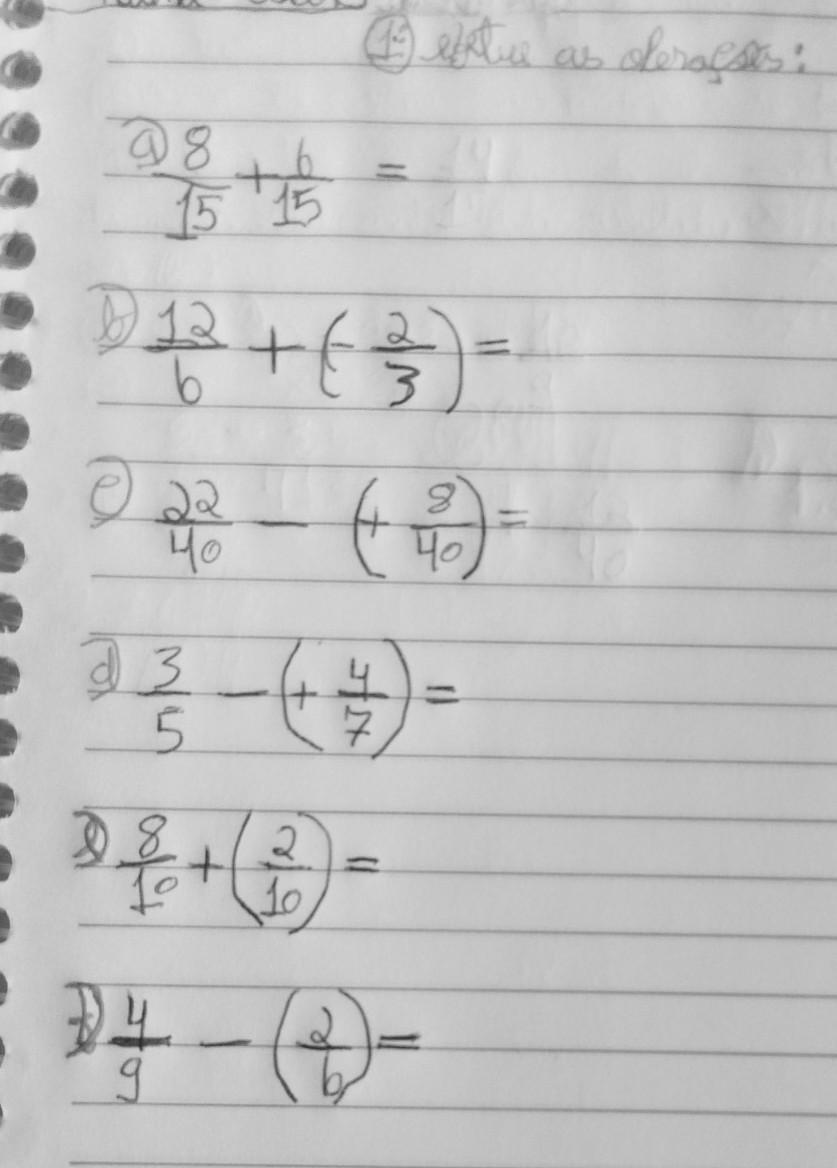 ① efetue as operações:
a) 8/15 + 6/15 =
b) 12/6 + (- 2/3) =
c) 22/40 - (+ 8/40) =
d) 3/5 - (+ 4/7) =
e) 8/10 + (2/10) =
f) 4/9 - (2/6) =